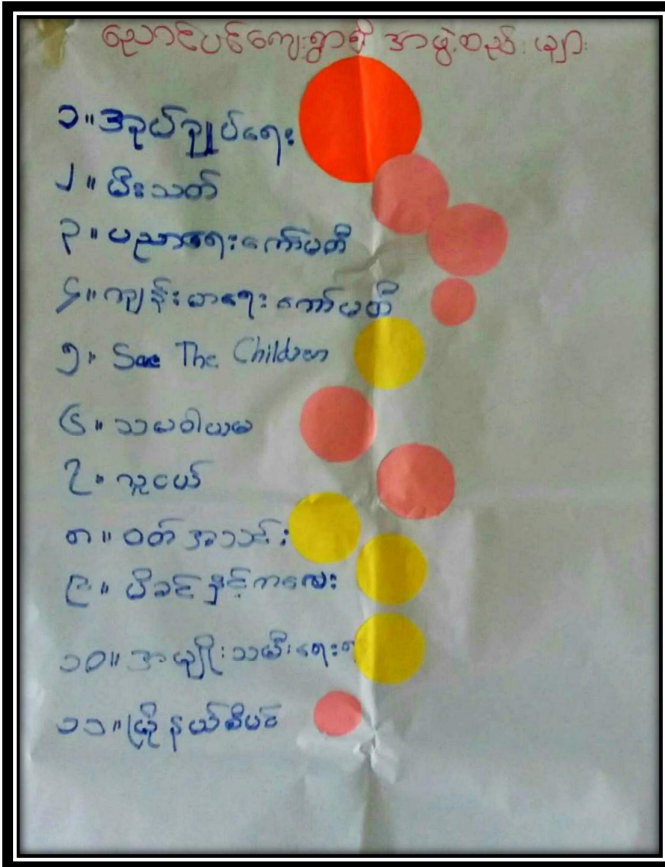 ညောင်ပင်ကျေးရွာရှိ အဖွဲ့စည်း များ
၁။ အုပ်ချုပ်ရေး
၂။ မီးသတ်
၃။ ပညာရေးကော်မတီ
၄။ ကျန်းမာရေးကော်မတီ
၅။ Save The Children
၆။ သမဝါယမ
၇။ လူငယ်
၈။ ဝတ်အသင်း
၉။ မိခင်နှင့်ကလေး
၁၀။ အမျိုးသမီးရေးရာ
၁၁။ မြို့နယ်စီမံ